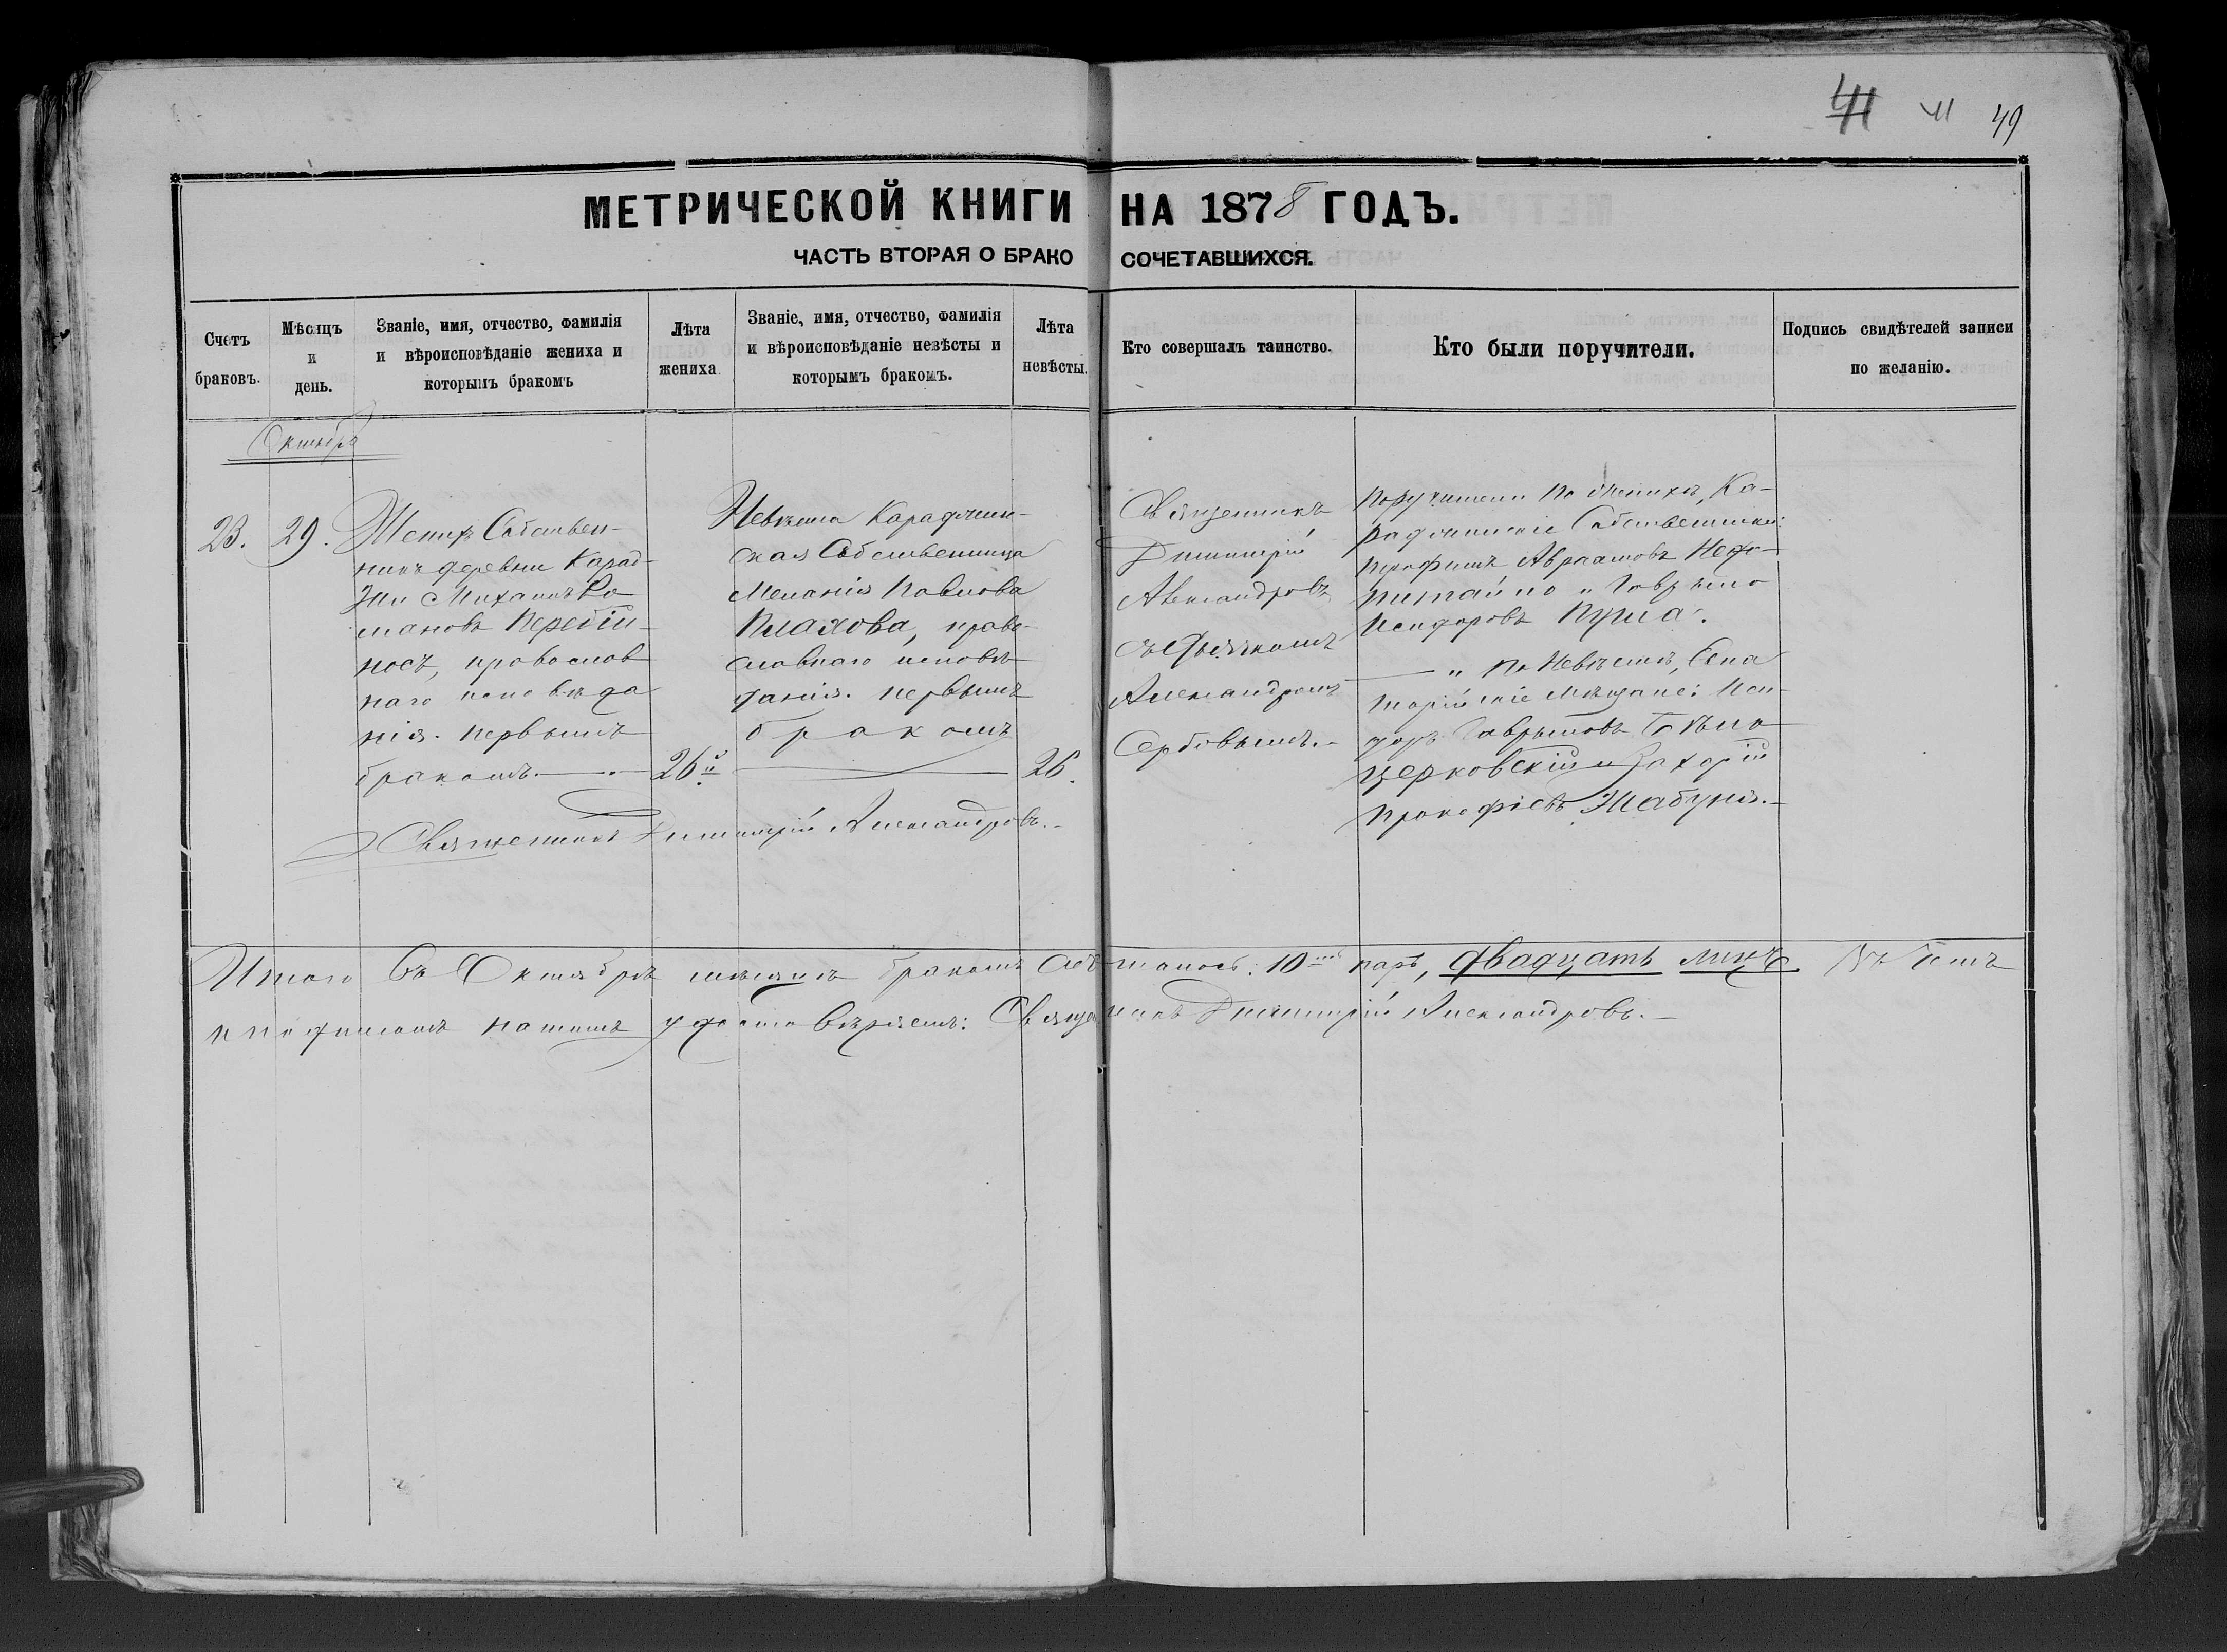 41 41 49
МЕТРИЧЕСКОЙ КНИГИ НА 1878 ГОДЪ.
ЧАСТЬ ВТОРАЯ О БРАКОСОЧЕТАВШИХСЯ.
Счетъ браковъ.
Мѣсяцъ и день.
Званіе, имя, отчество, фамилія
и вѣроисповѣданіе жениха и
которымъ бракомъ
Лѣта жениха
Званіе, имя, отчество, фамилія
и вѣроисповѣданіе невѣсты и
которымъ бракомъ.
Лѣта невѣсты.
Кто совершалъ таинство.
Кто были поручители.
Подпись свидѣтелей записи
по желанію.
Октябрь
23. 29.
Женихъ Собствен-
никъ деревни Карад-
жи Михаилъ Ро
мановъ Перебій-
носъ, православ
наго исповѣда
нія. первымъ
бракомъ.
26
Невѣста Караджин-
ская Собственница
Меланія Павлова
Плахова, право-
славнаго исповѣ-
данія. первымъ
бракомъ
26.
Священникъ
Димитрій
Александровъ
съ Дьячкомъ
Александромъ
Сербовымъ.
Поручители по женихѣ, Ка-
раджинскіе Собственники:
Авраамовъ Недо-
питайло и Гаврыло
Исидоровъ Пужа.
— " По Невѣстѣ, Евпа
торійскіе Мѣщане: Иси-
доръ Гаврыловъ Бѣло
церковскій и Захарій
Прокофіевъ Жабуня.
Священникъ Димитрій Александровъ.
Итого въ Октябрѣ мѣсяцѣ бракомъ сочталось: 10 паръ, двадцать лицъ. Въ томъ
и подписомъ нашимъ удостовѣряемъ: Священникъ Димитрій Александровъ.